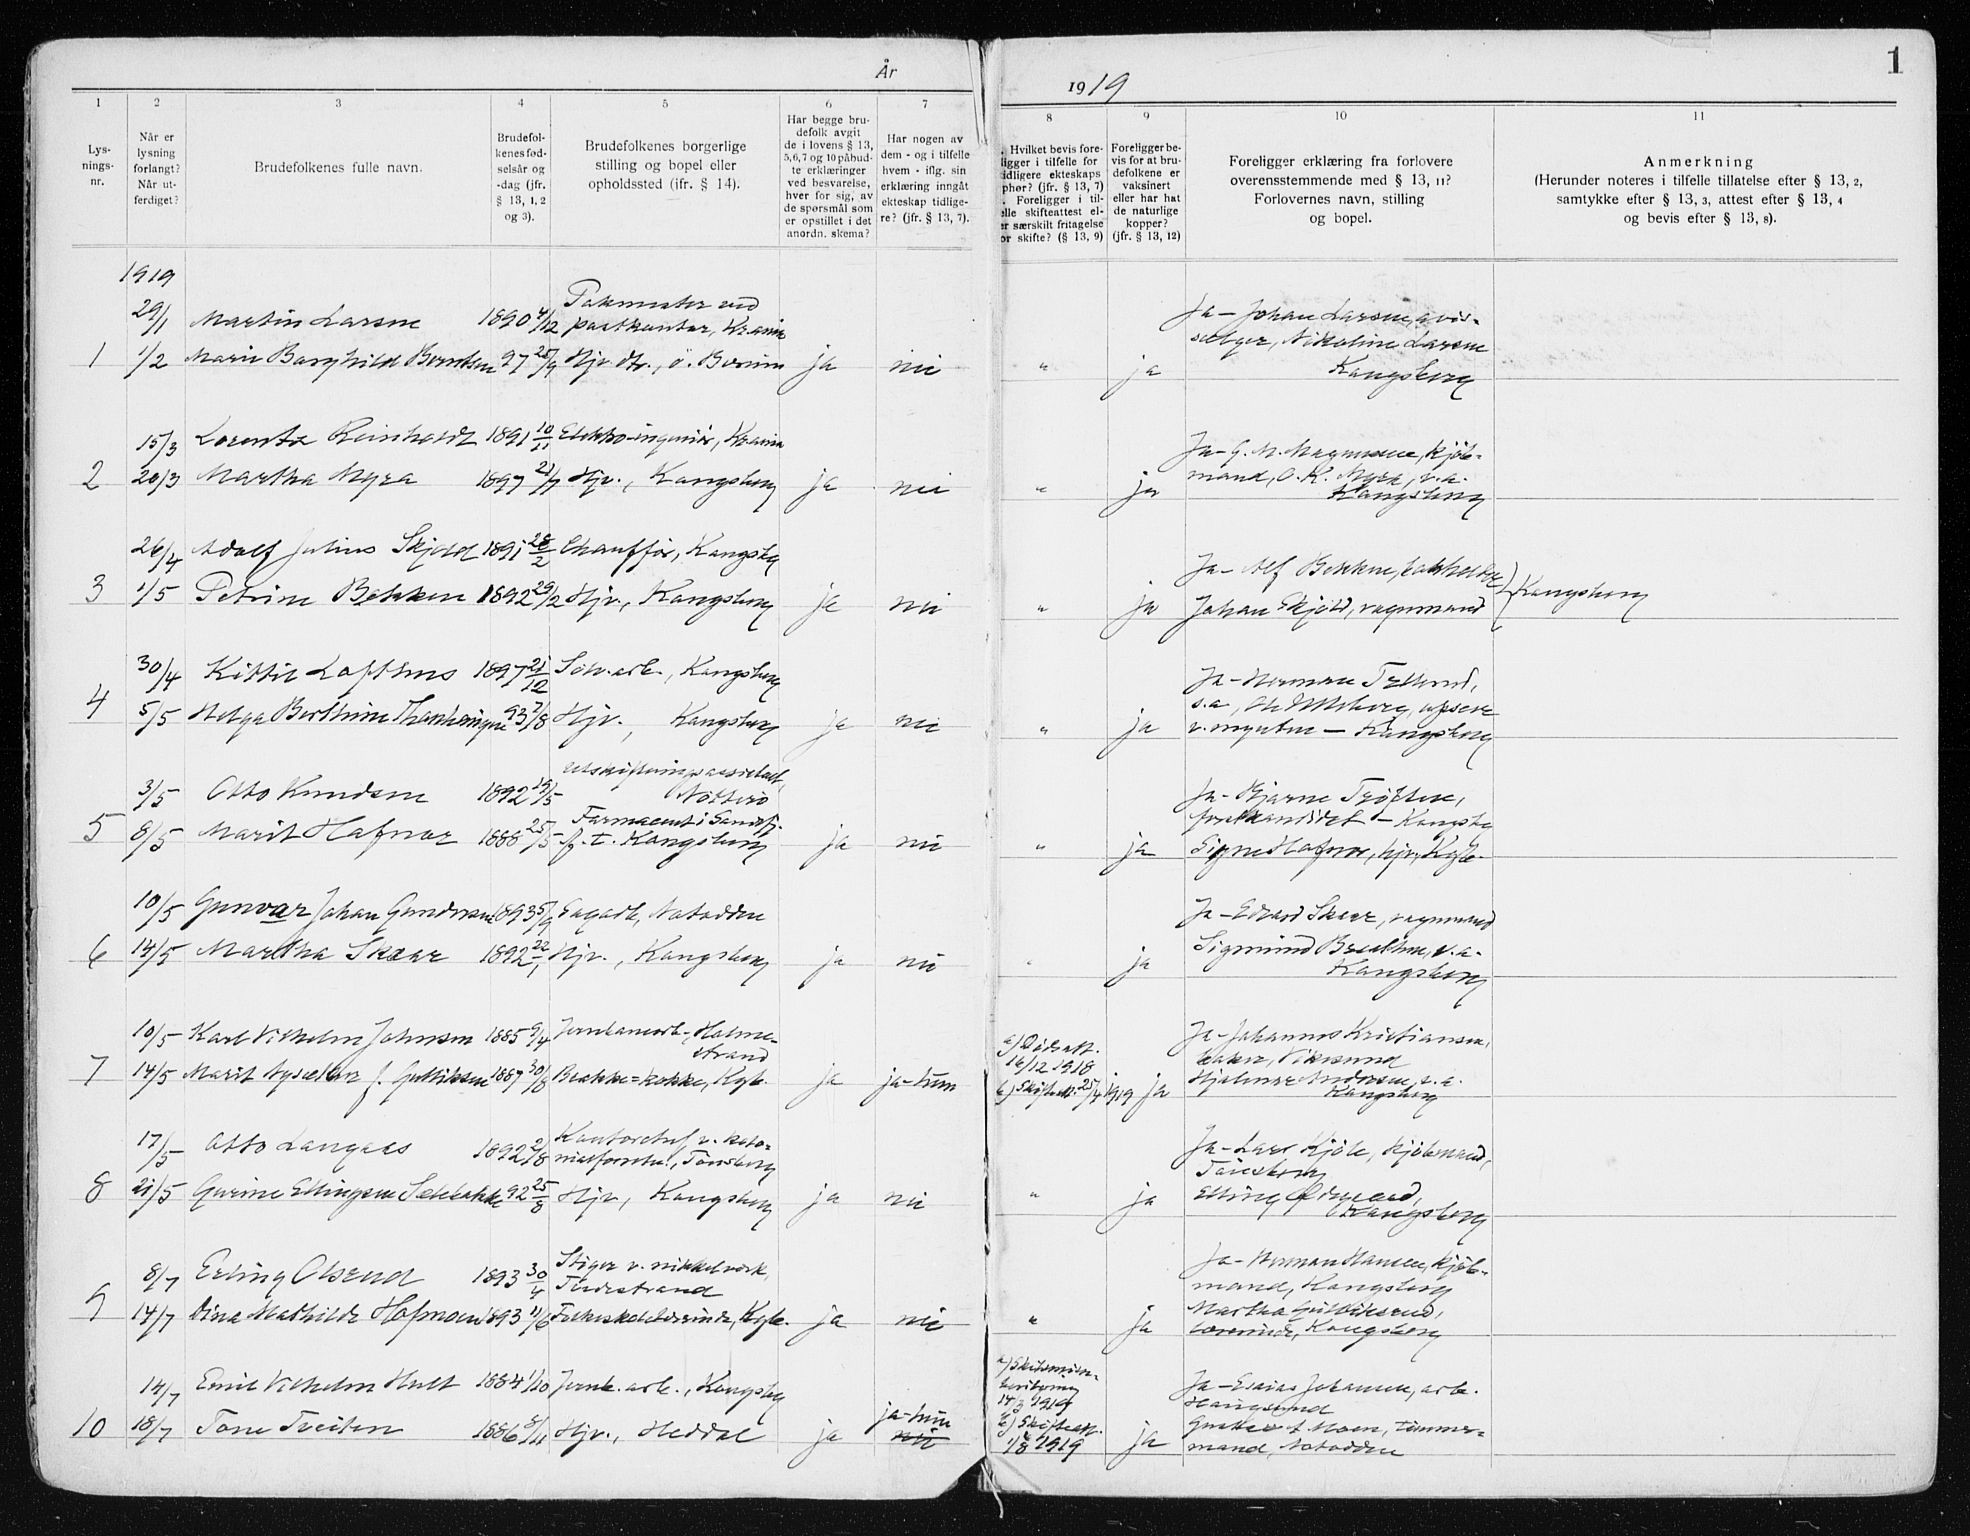 År
1919
1
1
2
3
4
5
6
7
8
9
10
11
Lys-
nings-
nr.
Når er
lysning
forlangt?
Når ut-
ferdiget?
Brudefolkenes fulle navn.
Brudefol-
kenes fød-
selsår og
-dag (jfr.
§ 13, 1, 2
og 3).
Brudefolkenes borgerlige
stilling og bopel eller
opholdssted (ifr. § 14).
Har begge bru-
defolk avgit
de i lovens § 13,
5,6,7 og 10 påbud-
te erklæringer
ved besvarelse,
hver for sig, av
de spørsmål som
er opstillet i det
anordn. skema?
Har nogen av
dem - og i tilfelle
hvem - iflg. sin
erklæring inngått
ekteskap tidlige-
re? (jfr. § 13, 7).
. Hvilket bevis fore-
ligger i tilfelle for
idligere ekteskaps
phør? (jfr. § 13, 7)
. Foreligger i til-
elle skifteattest el-
er særskilt fritagelse
or skifte? (§ 13, 9)
Foreligger be-
vis for at bru-
defolkene er
vaksinert
eller har hat
de naturlige
kopper?
(jfr. § 13, 12)
Foreligger erklæring fra forlovere
overensstemmende med § 13, 11?
Forlovernes navn, stilling
og bopel.
Anmerkning
(Herunder noteres i tilfelle tillatelse efter § 13, 2,
samtykke efter § 13, 3, attest efter § 13, 4
og bevis efter § 13, 8).
1919
29/1 Martin Larsen 1890 4/12 Pakmester ved
postkontor, Krania
1 1/2 Marie Borghild Berntsen 97 25/9 Hjv. dtr., ö. Bærum ja nei " ja
Ja - Johan Larsen, avis-
selger, Nikoline Larsen
Kongsberg
15/3 Lorentz Reinholdt 1891 10/11 Elektro-ingeniör, Krania
2 20/3 Martha Myra 1897 21/7 Hjv., Kongsberg ja nei " ja
Ja - G. M. Magnussen, kjöb-
mand, O. K. Myra, v.a.
Kongsberg
26/4 Adolf Julius Skjold 1891 28/2 Chaufför, Kongsbg
3 1/5 Petrine Bekken 1892 29/2 Hjv., Kongsberg ja nei " ja
Ja - Alf Bekken,
Johan Skjold, vognmand
Kongsberg
30/4 Kittil Lofthus 1897 21/12 Sölv.arb., Kongsberg
4 5/5 Helga Berthine 93 7/8 Hjv., Kongsberg ja nei " ja
Ja - Herman
s.a,
v. mynten - Kongsberg
3/5 Otto Knudsen 1892 19/5 Utskiftningsassistent,
Nötterö
5 8/5 Marit Hafnor 1888 25/5 Farmaceut i Sandefj.
f. t. Kongsberg ja nei " ja
Ja - Bjarne Tröften,
forstkandidat - Kongsbg
Signe Hafnor, hjv, Kgb.
10/5 Gunvar Johan Gundersen 1893 5/9 Notodden
6 14/5 Martha Skaar 1892 22/1 Hjv., Kongsberg ja nei " ja
Ja - Edvard Skaar, vognmand
Sigmund v.a.
Kongsberg
10/5 Karl Vilhelm Johnsen 1885 9/4 Jernbanearb., Holme-
strand
7 14/5 Marit f. Gulliksen 1887 30/8 Brakke=kokke, Kgb. ja ja - hun
a) Dödsatt.
16/12 1918
b) Skifteatt. 25/4 1919 ja
Ja - Johannes Kristiansen,
baker, Vikersund
Hjalmar Andersen, s.a.
Kongsberg
17/5 Otto Langaas 1892 2/8 Kontorchef v.
Tönsberg
8 21/5 Gurine Ellingsen 92 25/8 Hjv., Kongsberg ja nei " ja
Ja - Lars Kjöle, kjöbmand,
Tönsberg
Elling
Kongsberg
8/7 Erling Olsrud 1893 30/4 Stiger v. nikkelverk,
9 14/7 Dina Mathilde Hofmoen 1893 11/6 Folkeskolelærerinde, Kgb. ja nei " ja
Ja - Herman Hansen, kjöb-
mand, Kongsberg
Martha Gulliksrud,
lærerinde, Kongsberg
14/7 Emil Vilhelm Hult 1884 1/10 Jernb. arb., Kongsberg
10 18/7 Tone Tveiten 1886 8/11 Hjv., Heddal ja ja - hun
nei
a) Skilsmisse-
bevilgning
14/3 1919
b) Skifteatt.
1/8 1919 ja
Ja - Esaias Johansen, arb.
Haugsund
Moen, tömmer-
mand, Notodden